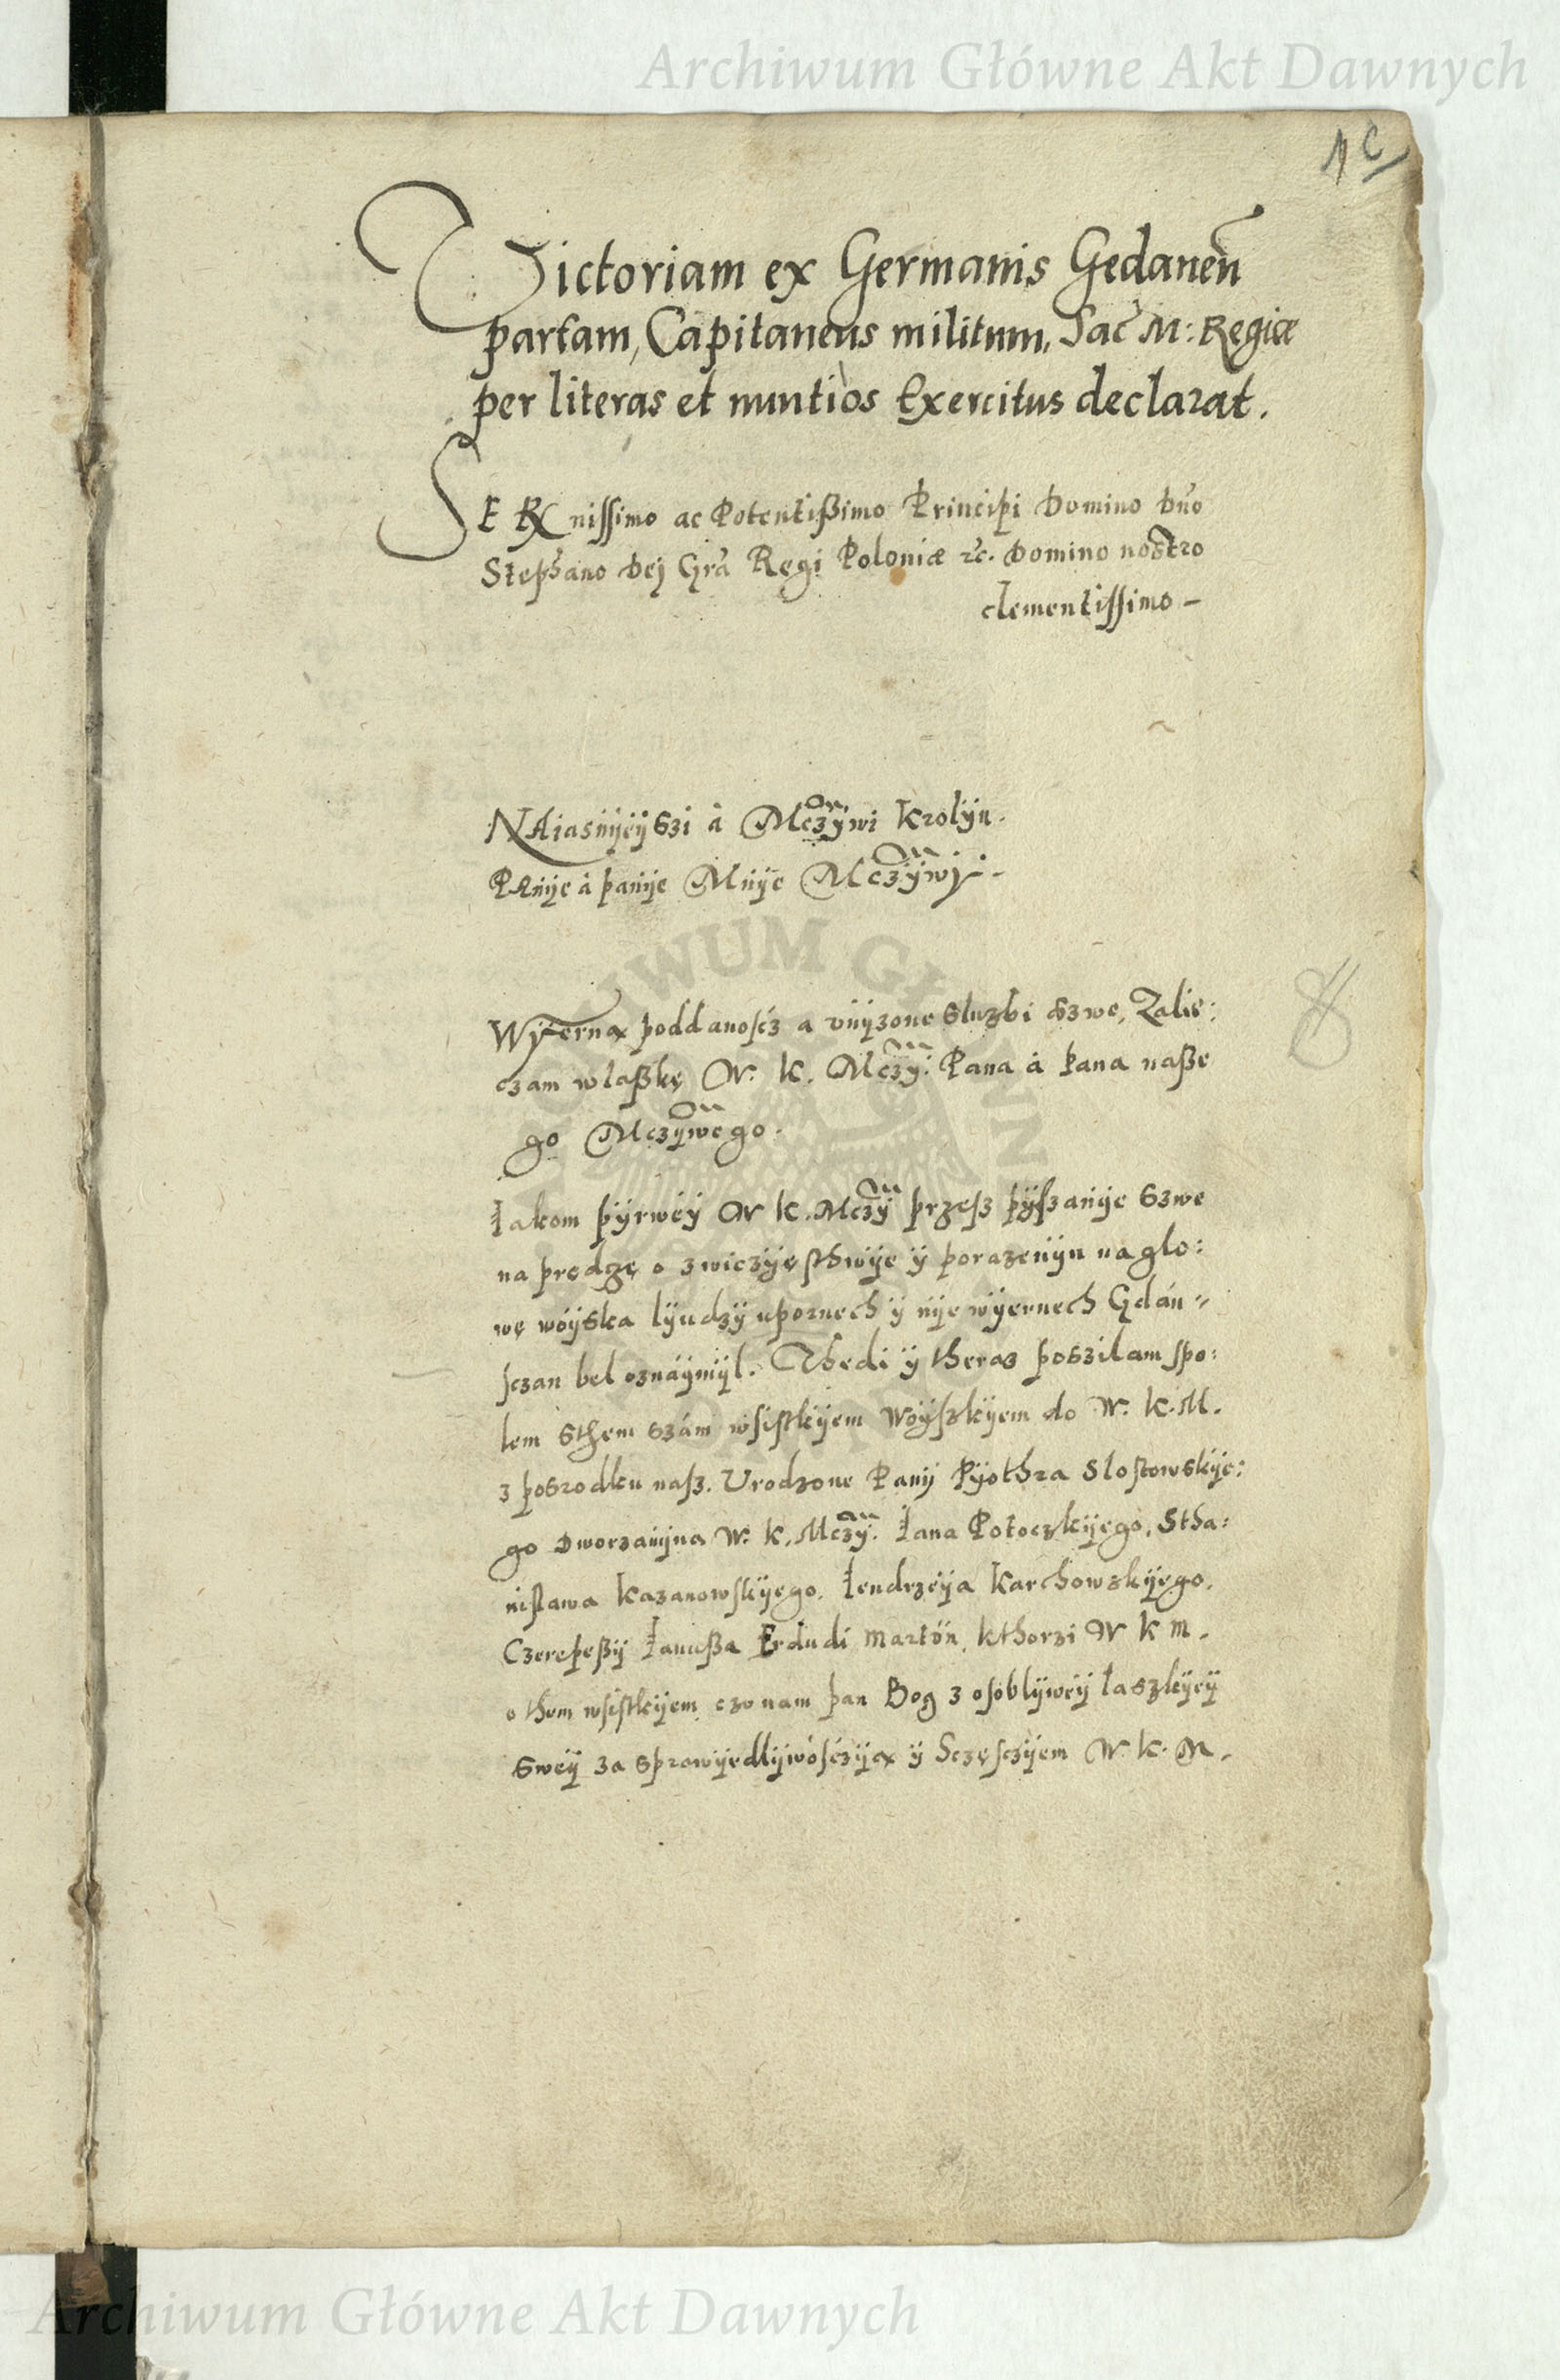 Archiwum Główne Akt Dawnych
Victoriam ex Germanis Gedaneñ
partam, Capitaneus militum, Sac̃ M: Regiæ
per literas et nuntios Exercitus declarat.
SERX nissimo ac Potentißimo Principi Domino Dño
Stephano Dej Grã Regi Poloniæ ꝛc. Domino nostro
clementissimo –
NAiasnÿeÿszi à Mczÿwi Krolÿu.
PAnÿe à panÿe Mnÿe Mczÿwÿ. –
Wÿerna poddanoscz a vnÿzone sluzbi szwe, Zalie:
czam wlaßkę W. K. Mczÿ. Pana à Pana naße
go Mczÿwego.
Iakom pÿrweÿ W K. Mczÿ przesz pÿszanÿe szwe
na prędzę o zwiczÿęsthwÿe ÿ porazenÿu na glo:
wę woÿska lÿudzÿ upornech ÿ nÿe wÿernech Gdán=
sczan bel oznáÿmÿl. Thedi ÿ theraz poszilam spo:
lem sthem szám wsistkÿem Woÿszkÿem do W. K. M.
z posrodku nasz. Urodzone Panÿ Pÿothra Slostowskÿe:
go Dworzanÿna W. K. Mczÿ. Iana Potoczkÿego, Stha:
nislawa Kazanowskÿego, Iendrzeÿa Karchowskÿego,
Czerepeßÿ Ianußa Erdudi Martón, kthorzi W K M.
o thom wsistkÿem, czo nam pan Bog z osoblÿweÿ laszkÿeÿ
sweÿ za sprawÿedlÿwosczÿa ÿ Sczęsczÿem W. K. M.
Archiwum Główne Akt Dawnych